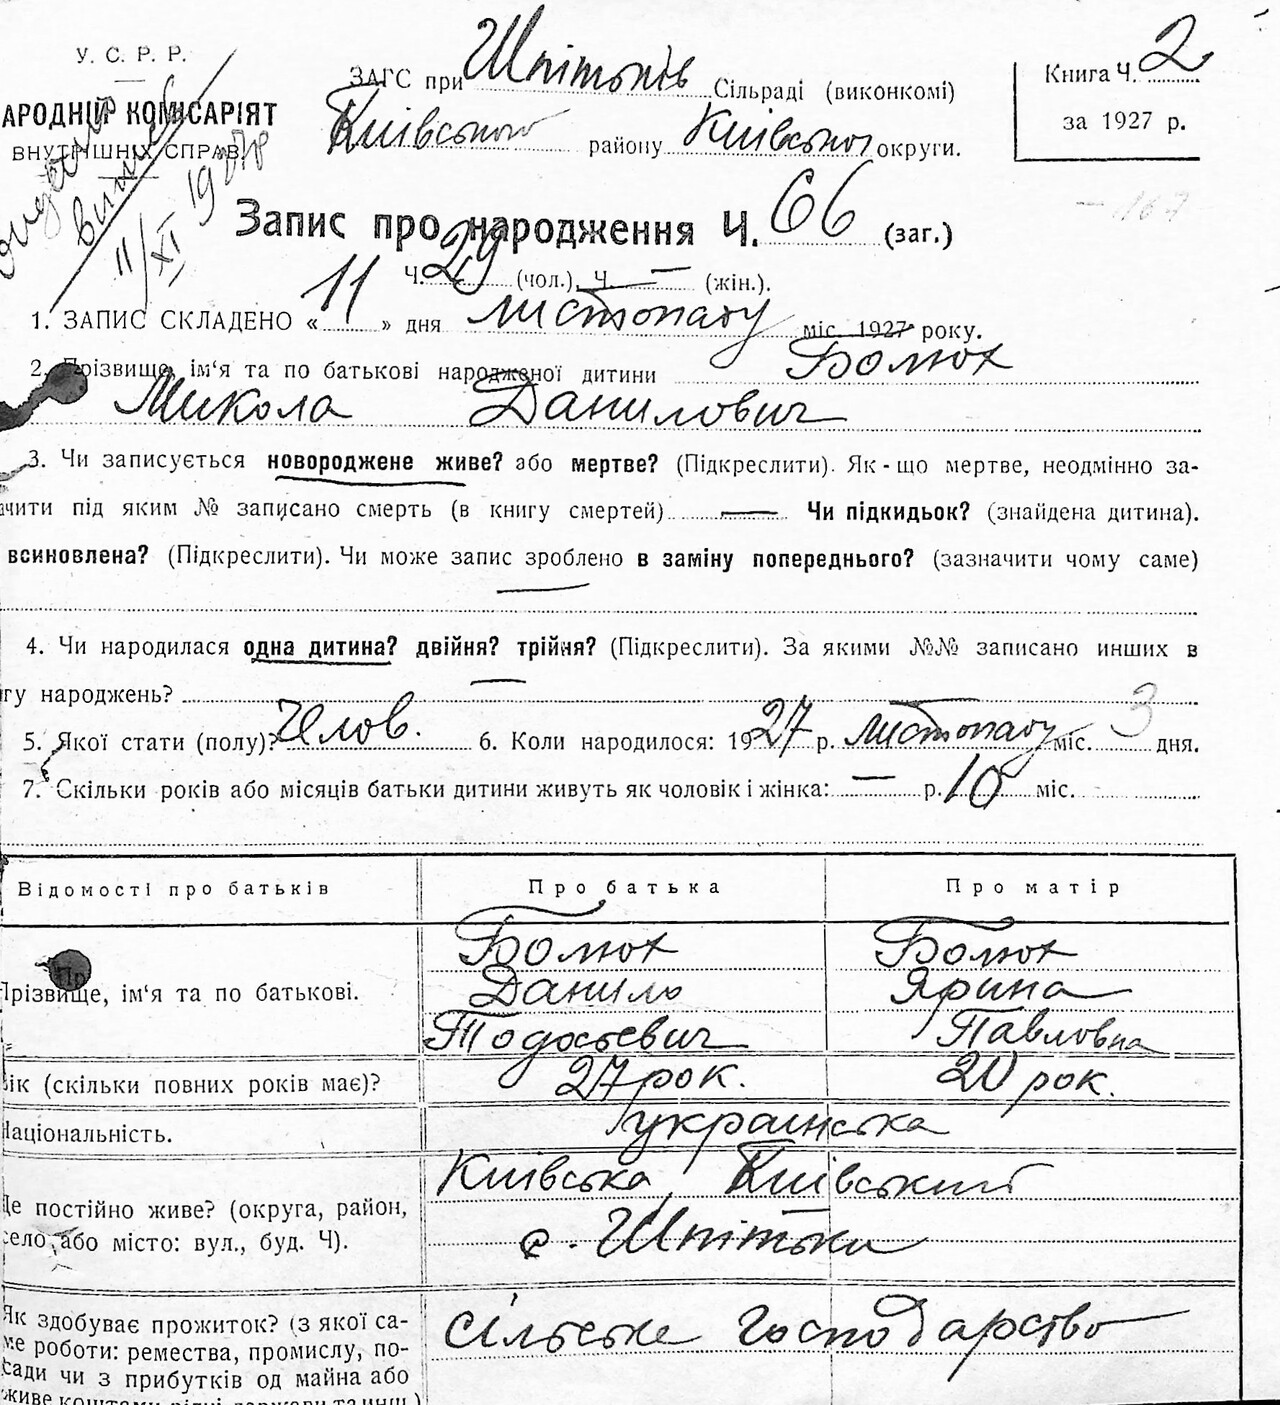 У. С. Р. Р.
АРОДНІЙ КОМІСАРІЯТ
ВНУТРІШНІХ СПРАВ
11/XI 19
ЗАГС при Шпітьків Сільраді (виконкомі)
Київського району Київської округи.
Книга Ч. 2
за 1927 р.
167
Запис про народження Ч. 66 (заг.)
Ч. 29 (чол.), Ч. — (жін.).
1. ЗАПИС СКЛАДЕНО « 11 » дня листопаду міс. 1927 року.
2. Прізвище, ім‘я та по батькові народженої дитини Болюх
Микола Данилович
3. Чи записується новороджене живе? або мертве? (Підкреслити). Як-що мертве, неодмінно за-
чити під яким № записано смерть (в книгу смертей) — Чи підкидьок? (знайдена дитина).
всиновлена? (Підкреслити). Чи може запис зроблено в заміну попереднього? (зазначити чому саме)
—
4. Чи народилася одна дитина? двійня? трійня? (Підкреслити). За якими №№ записано инших в
гу народжень? —
5. Якої стати (полу)? Челов. 6. Коли народилося: 1927 р. листопаду міс. 3 дня.
7. Скільки років або місяців батьки дитини живуть як чоловік і жінка: — р. 10 міс.
Відомості про батьків Про батька Про матір
Прізвище, ім‘я та по батькові. Болюх Данило Тодосьевич Болюх Ярина Павловна
ік (скільки повних років має)? 27 рок. 20 рок.
Національність. українська
Де постійно живе? (округа, район, село, або місто: вул., буд. Ч). Київська, Київський
с. Шпітьки
Як здобуває прожиток? (з якої са- Сільське господарство
ме роботи: ремества, промислу, по-
сади чи з прибутків од майна або
живе коштами рідні, держави та инш.)